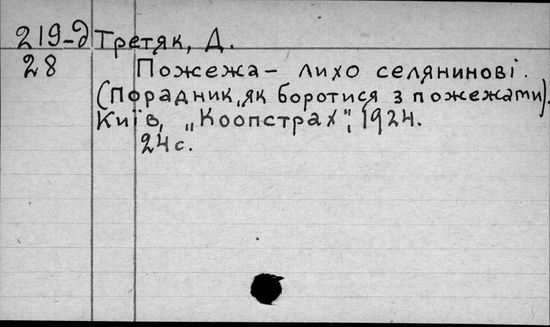 219-д Третяк, Д.
28 Пожежа - лихо селянинові.
(Порадник, як боротися з пожежами).
Київ, „Коопстрах", 1924.
24 с.